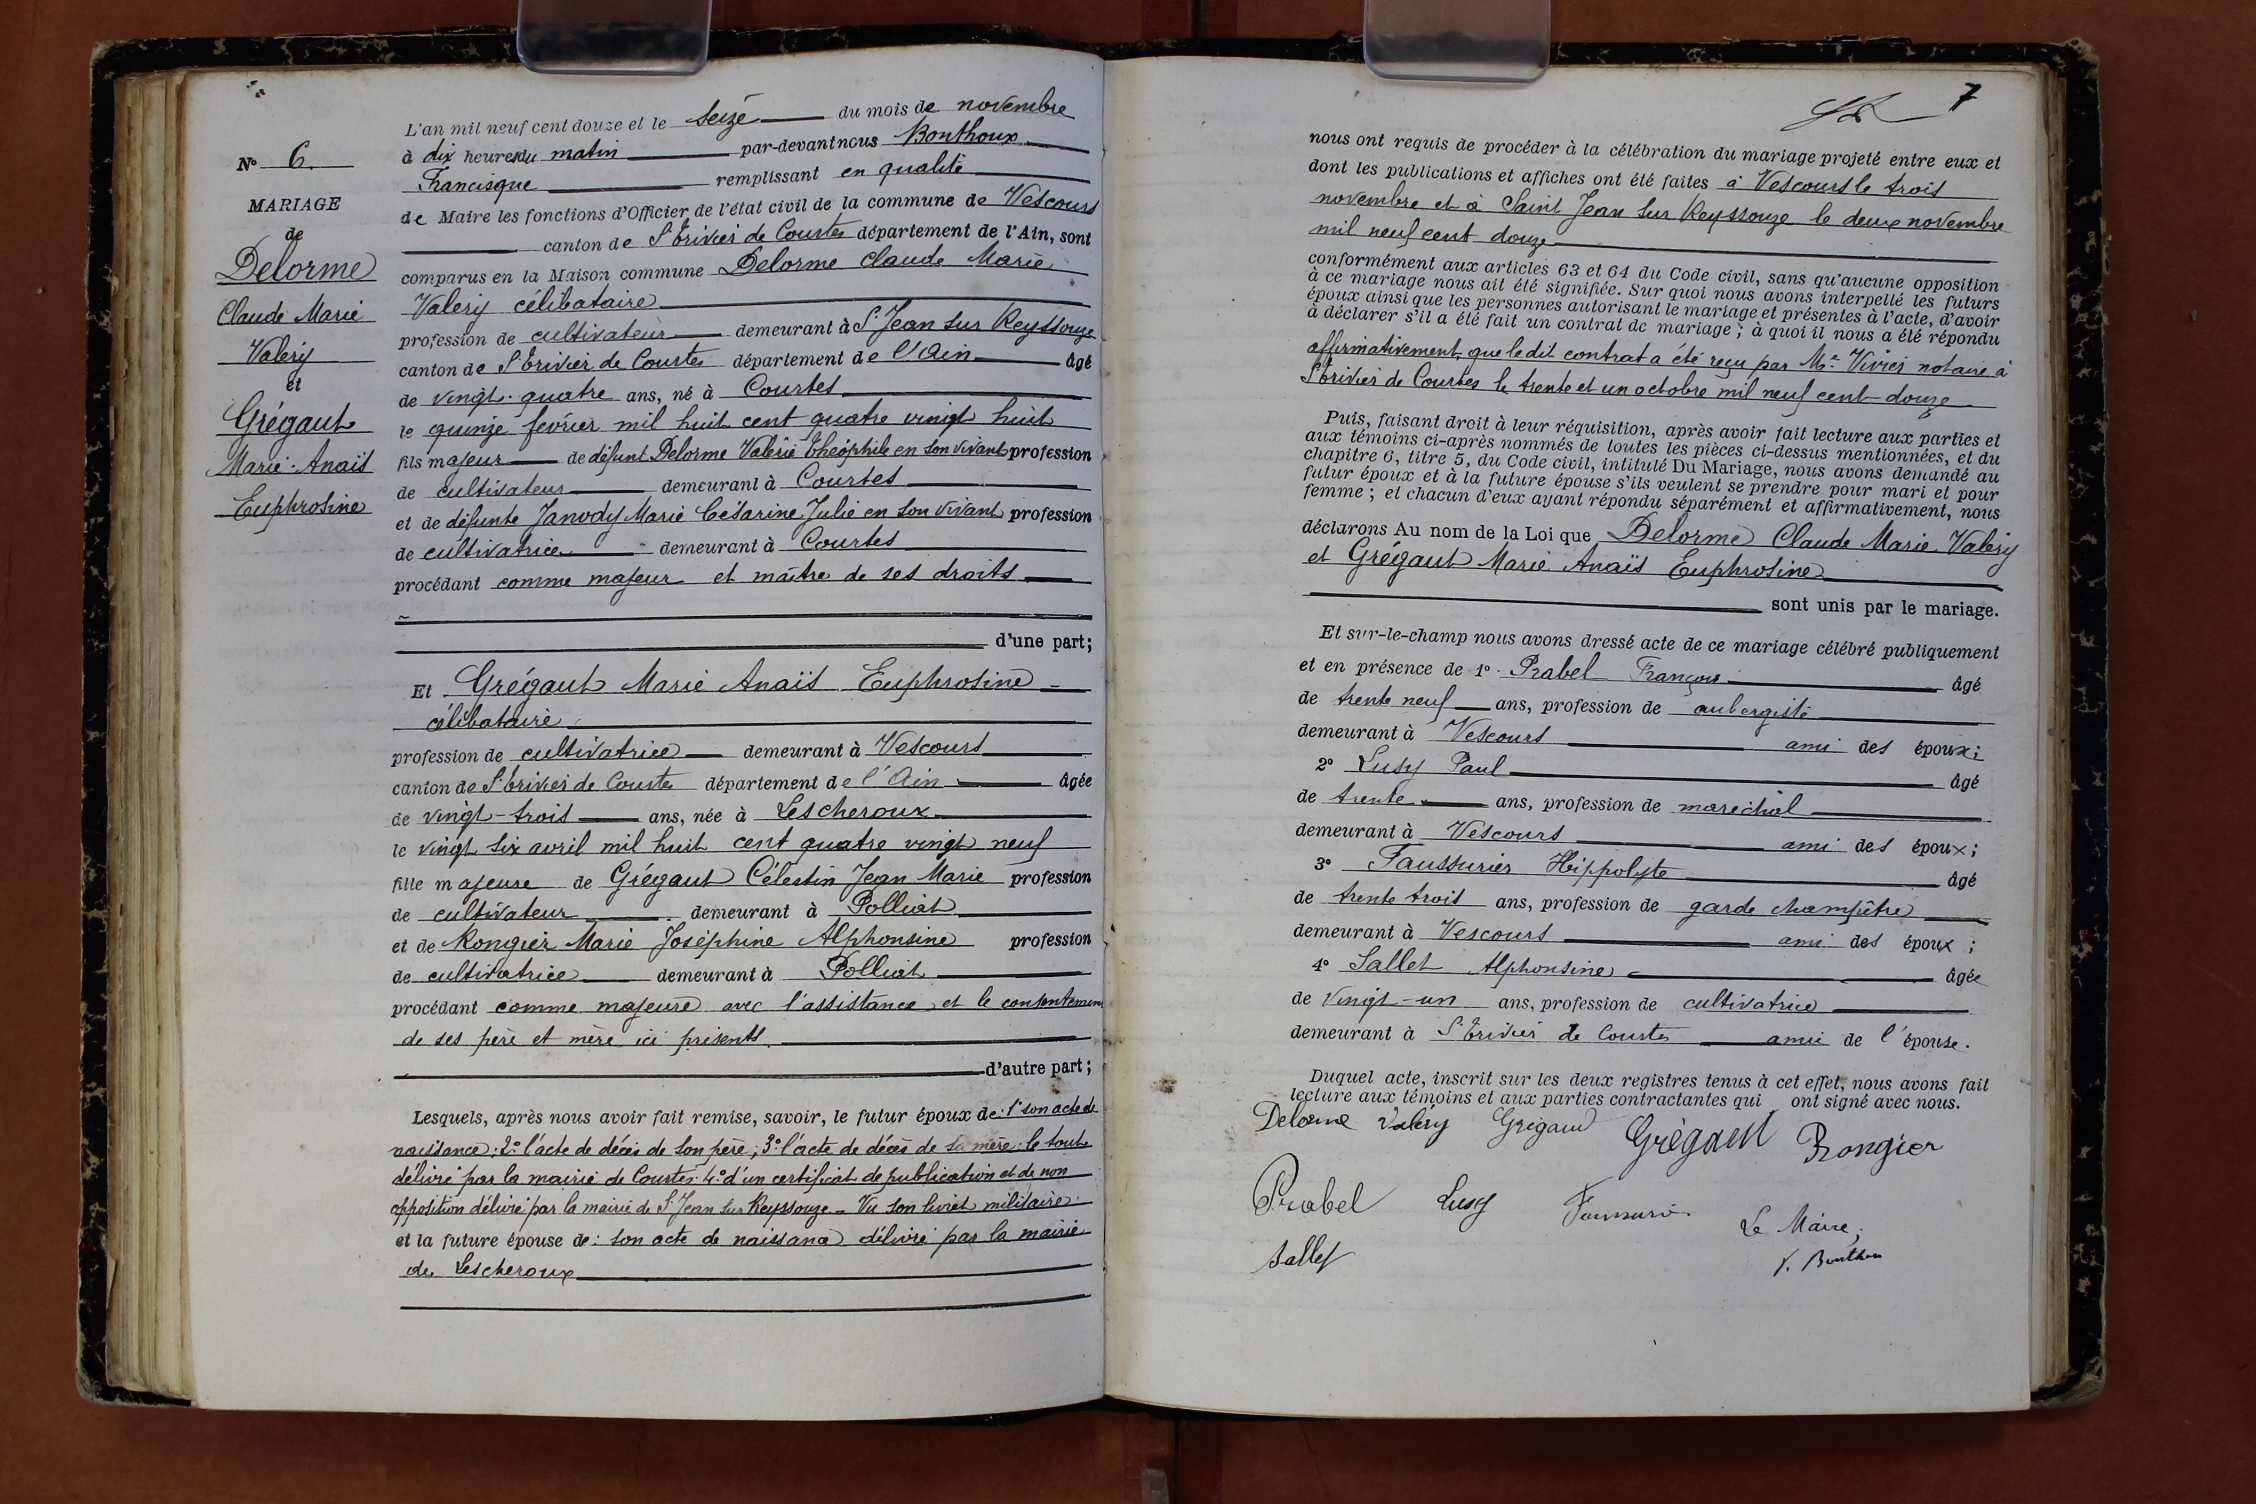 N° 6.
MARIAGE
de
Delorme
Claude Marie
Valery
et
Grégaut
Marie-Anaïs
Euphrosine
L'an mil neuf cent douze et le seize du mois de novembre
à dix heures du matin par-devant nous Bonthoux
Francisque remplissant en qualité
de Maire les fonctions d'Officier de l'état civil de la commune de Vescours
canton de St Trivier de Courtes département de l'Ain, sont
comparus en la Maison commune Delorme Claude Marie
Valery célibataire
profession de cultivateur demeurant à St Jean sur Reyssouze
canton de St Trivier de Courtes département de l'Ain âgé
de vingt-quatre ans, né à Courtes
le quinze février mil huit cent quatre vingt huit
fils majeur de défunt Delorme Valérie Théophile en son vivant profession
de cultivateur demeurant à Courtes
et de défunte Janody Marie Césarine Julie en son vivant profession
de cultivatrice demeurant à Courtes
procédant comme majeur et maître de ses droits
d'une part;
Et Grégaut Marie Anaïs Euphrosine
célibataire
profession de cultivatrice demeurant à Vescours
canton de St Trivier de Courtes département de l'Ain âgée
de vingt-trois ans, née à Lescheroux
le vingt six avril mil huit cent quatre vingt neuf
fille majeure de Grégaut Célestin Jean Marie profession
de cultivateur demeurant à Polliat
et de Rongier Marie Joséphine Alphonsine profession
de cultivatrice demeurant à Polliat
procédant comme majeure avec l'assistance et le consentement
de ses père et mère ici présents
d'autre part;
Lesquels, après nous avoir fait remise, savoir, le futur époux de: 1° son acte de
naissance; 2° l'acte de décès de son père; 3° l'acte de décès de sa mère; le tout
délivré par la mairie de Courtes; 4° d'un certificat de publication et de non
opposition délivré par la mairie de St Jean sur Reyssouze - Vu son livret militaire
et la future épouse de: son acte de naissance délivré par la mairie
de Lescheroux
7
nous ont requis de procéder à la célébration du mariage projeté entre eux et
dont les publications et affiches ont été faites à Vescours le trois
novembre et à Saint Jean sur Reyssouze le deux novembre
mil neuf cent douze
conformément aux articles 63 et 64 du Code civil, sans qu'aucune opposition
à ce mariage nous ait été signifiée. Sur quoi nous avons interpellé les futurs
époux ainsi que les personnes autorisant le mariage et présentes à l'acte, d'avoir
à déclarer s'il a été fait un contrat de mariage; à quoi il nous a été répondu
affirmativement que le dit contrat a été reçu par Me Vivier notaire à
St Trivier de Courtes le trente et un octobre mil neuf cent douze
Puis, faisant droit à leur réquisition, après avoir fait lecture aux parties et
aux témoins ci-après nommés de toutes les pièces ci-dessus mentionnées, et du
chapitre 6, titre 5, du Code civil, intitulé Du Mariage, nous avons demandé au
futur époux et à la future épouse s'ils veulent se prendre pour mari et pour
femme; et chacun d'eux ayant répondu séparément et affirmativement, nous
déclarons Au nom de la Loi que Delorme Claude Marie Valery
et Grégaut Marie Anaïs Euphrosine
sont unis par le mariage.
Et sur-le-champ nous avons dressé acte de ce mariage célébré publiquement
et en présence de 1° Prabel François âgé
de trente neuf ans, profession de aubergiste
demeurant à Vescours ami des époux;
2° Lusy Paul âgé
de trente ans, profession de maréchal
demeurant à Vescours ami des époux;
3° Faussurier Hippolyte âgé
de trente trois ans, profession de garde champêtre
demeurant à Vescours ami des époux;
4° Sallet Alphonsine âgée
de vingt-un ans, profession de cultivatrice
demeurant à St Trivier de Courtes amie de l'épouse.
Duquel acte, inscrit sur les deux registres tenus à cet effet, nous avons fait
lecture aux témoins et aux parties contractantes qui ont signé avec nous.
Delorme Valéry Grégaud Grégaut Rongier
Prabel Lusy Faussurier Le Maire,
Sallet F. Bonthoux